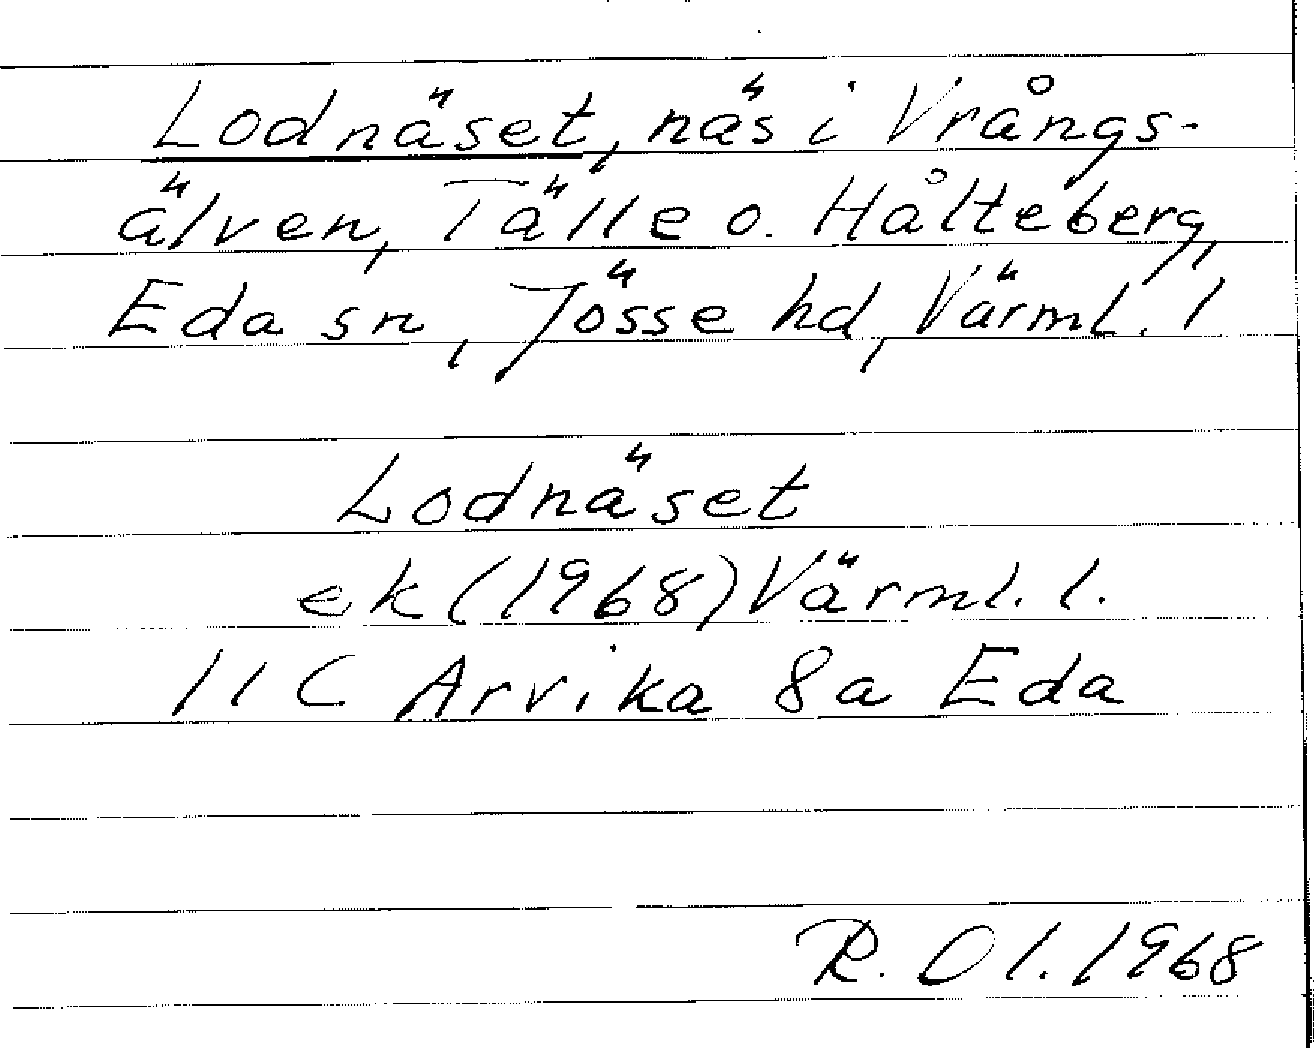 Lodnäset, näs i Vrångs-
älven, Tälle o. Hålteberg,
Eda sn, Jösse hd, Värml. l
Lodnäset
ek (1968) Värml. l.
11C Arvika 8a Eda
R. Ol. 1968